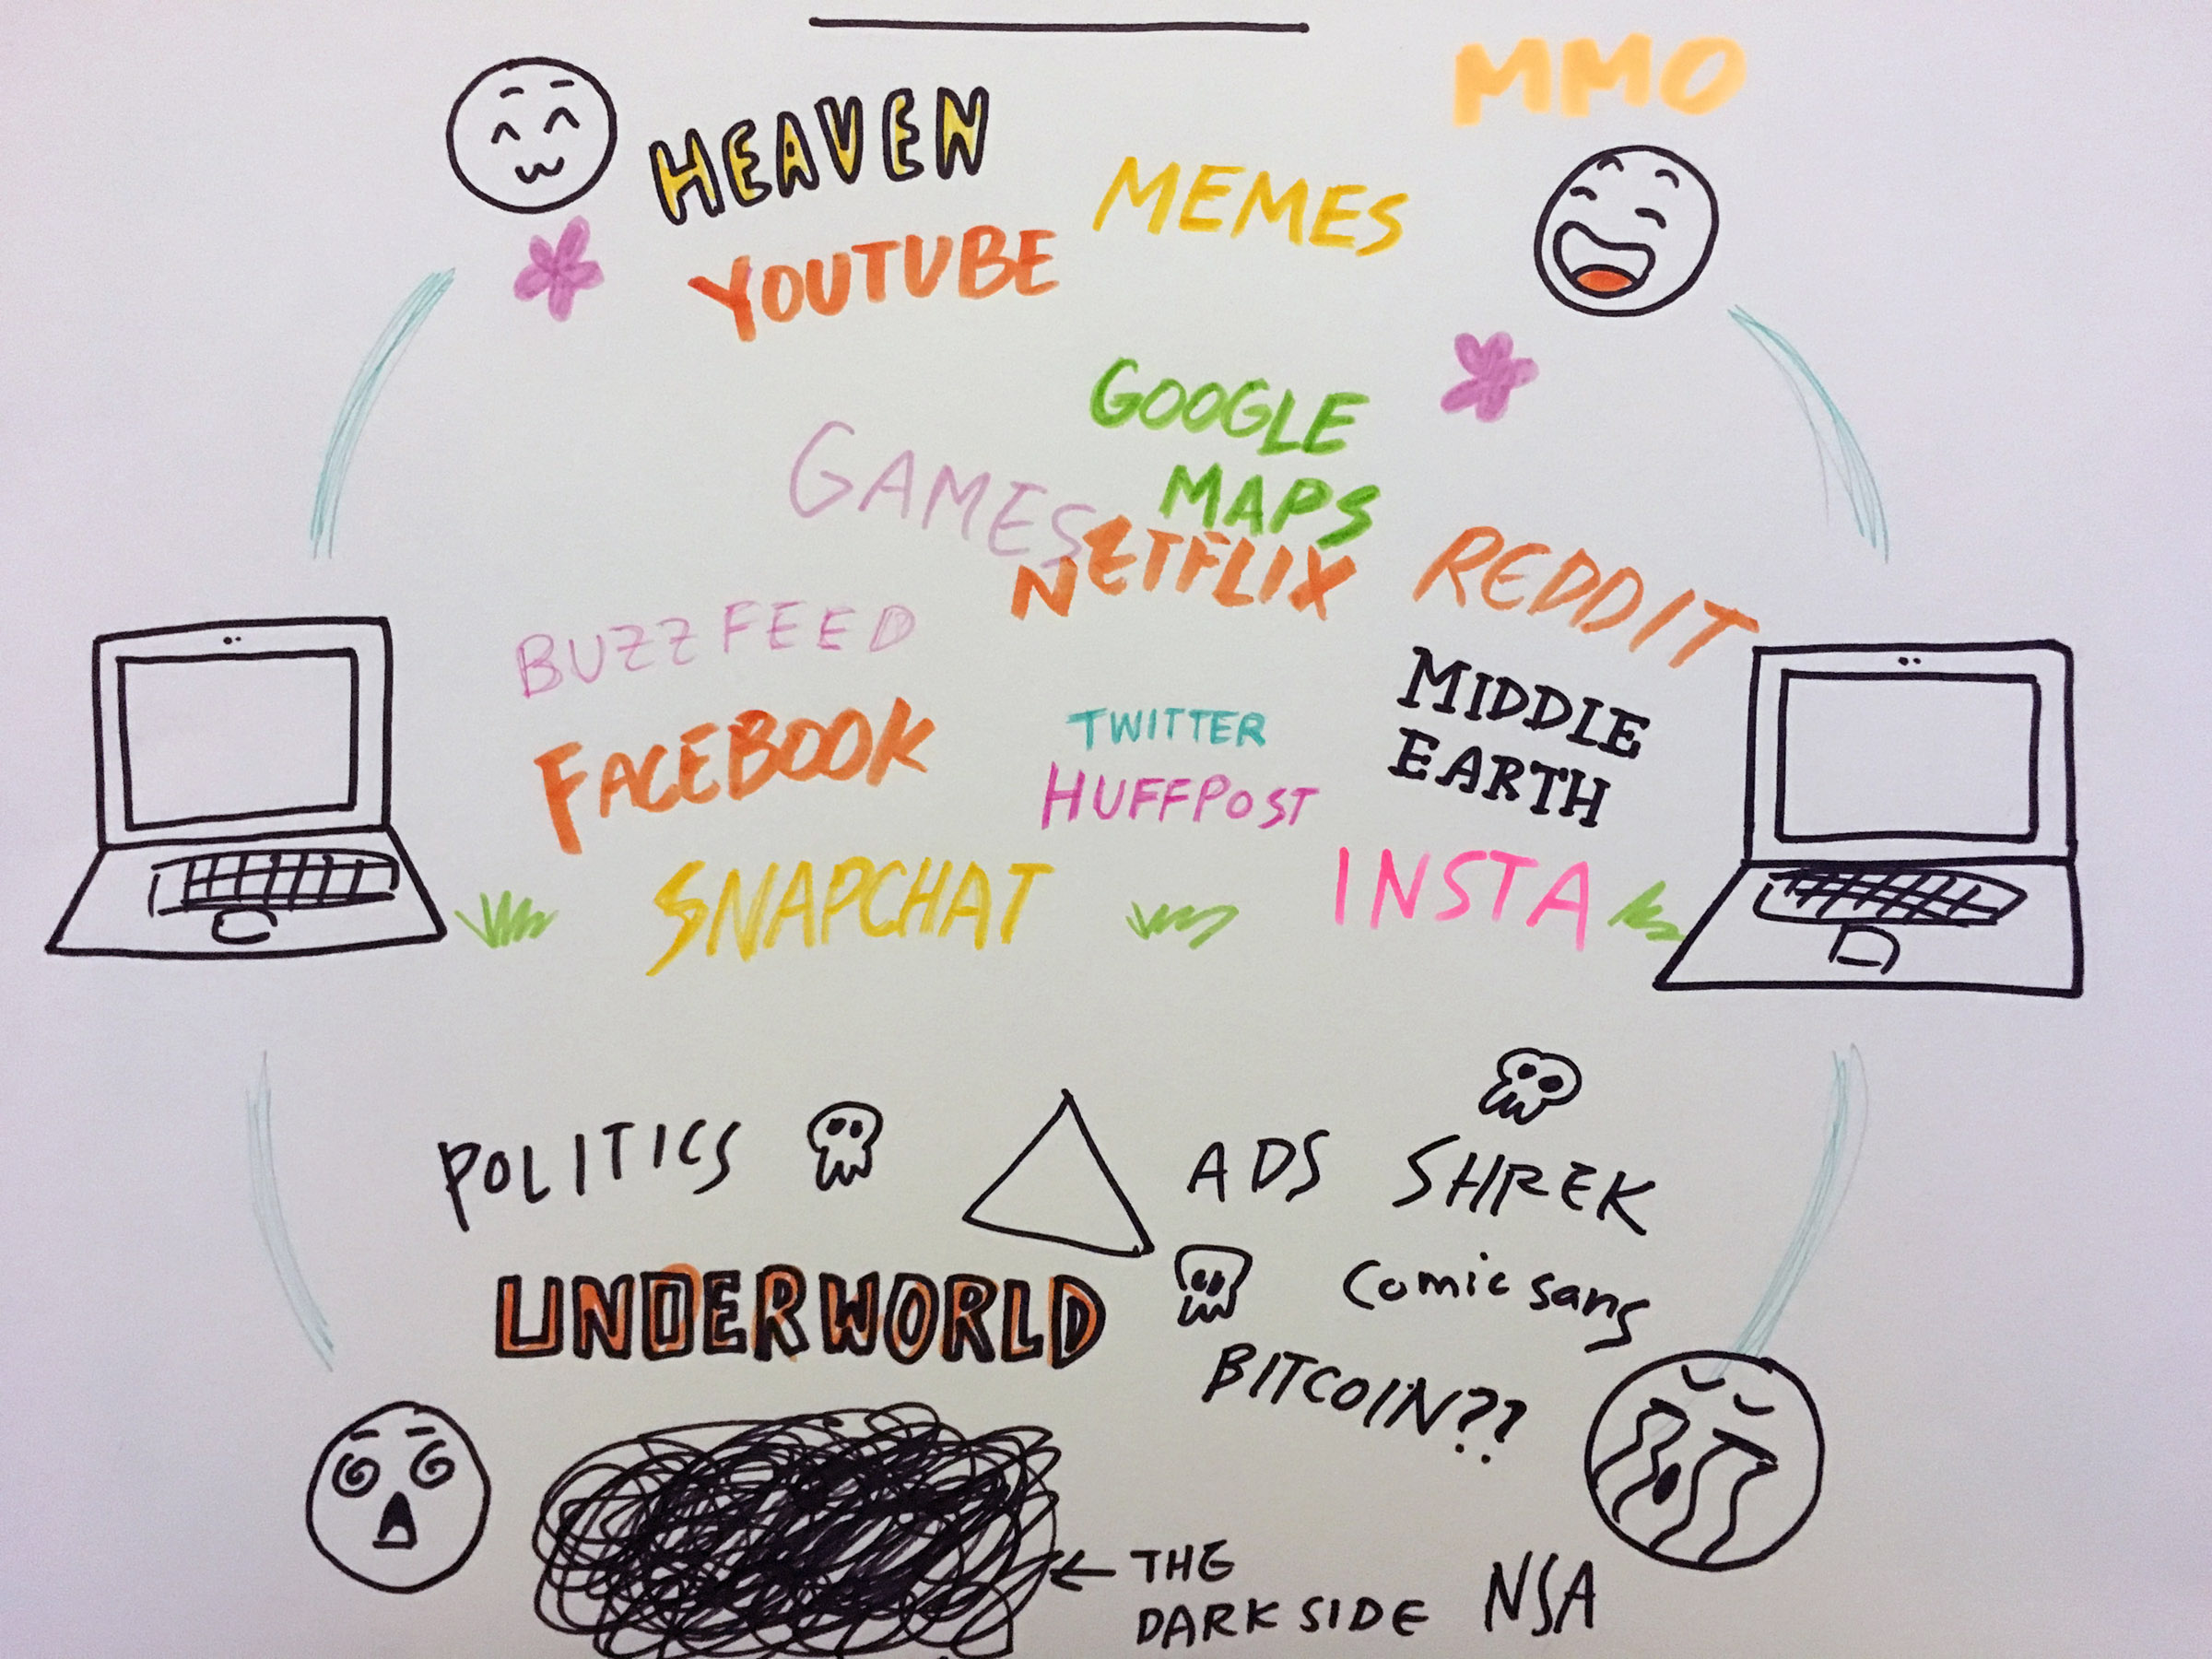 MMO
HEAVEN
MEMES
YOUTUBE
GOOGLE
MAPS
GAMES
NETFLIX
REDDIT
BUZZFEED
MIDDLE
EARTH
FACEBOOK
TWITTER
HUFFPOST
SNAPCHAT
INSTA
POLITICS
ADS
SHREK
UNDERWORLD
Comic sans
BITCOIN??
THE
DARK SIDE
NSA